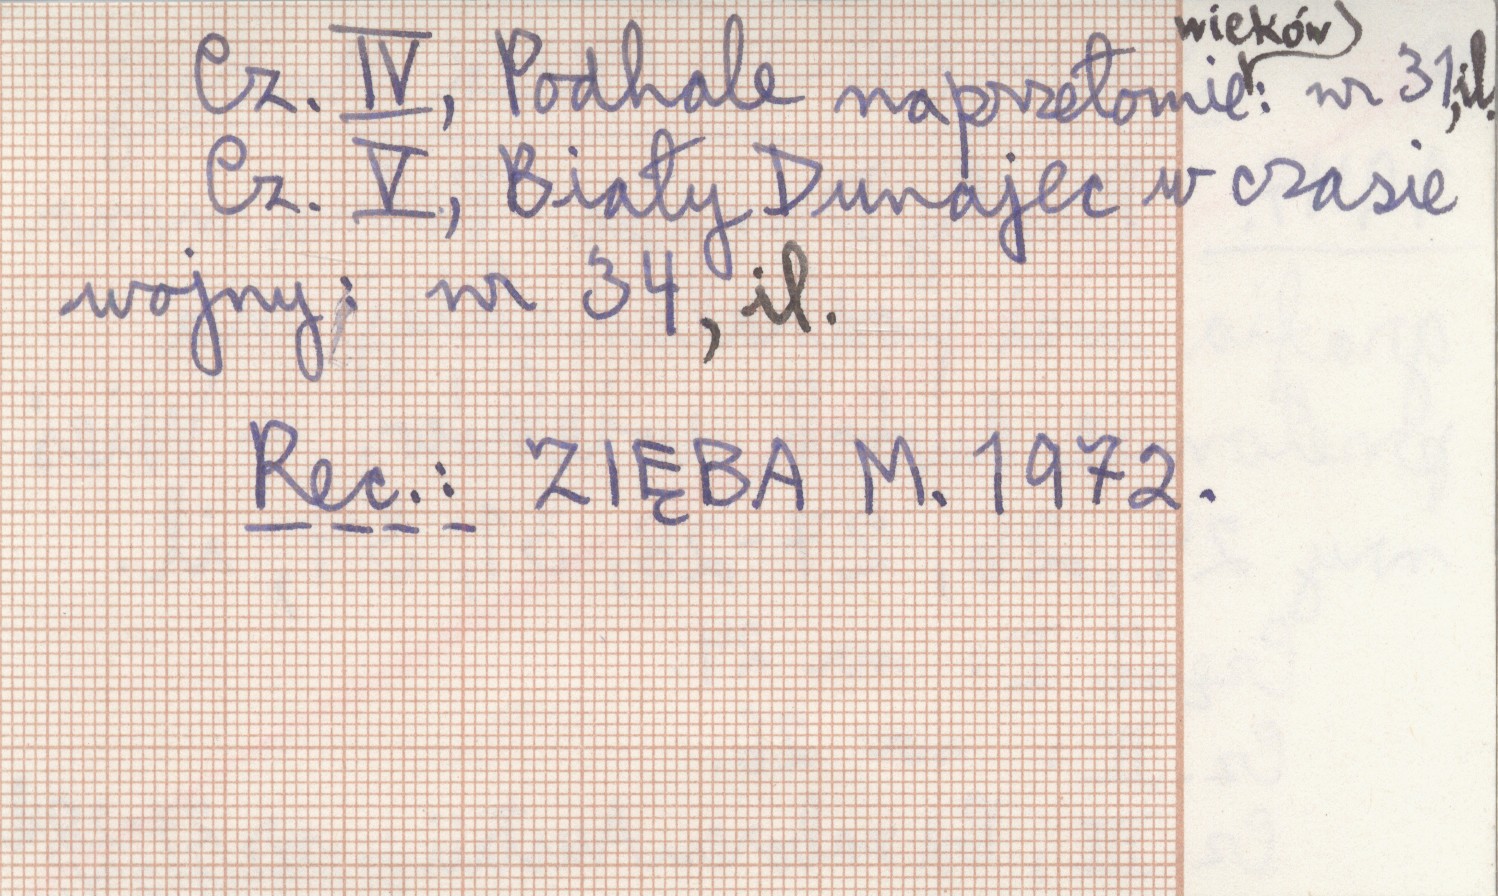 wieków
Cz. IV, Podhale na przełomie: nr 31, il.
Cz. V, Biały Dunajec w czasie
wojny: nr 34, il.
Rec.: ZIĘBA M. 1972.